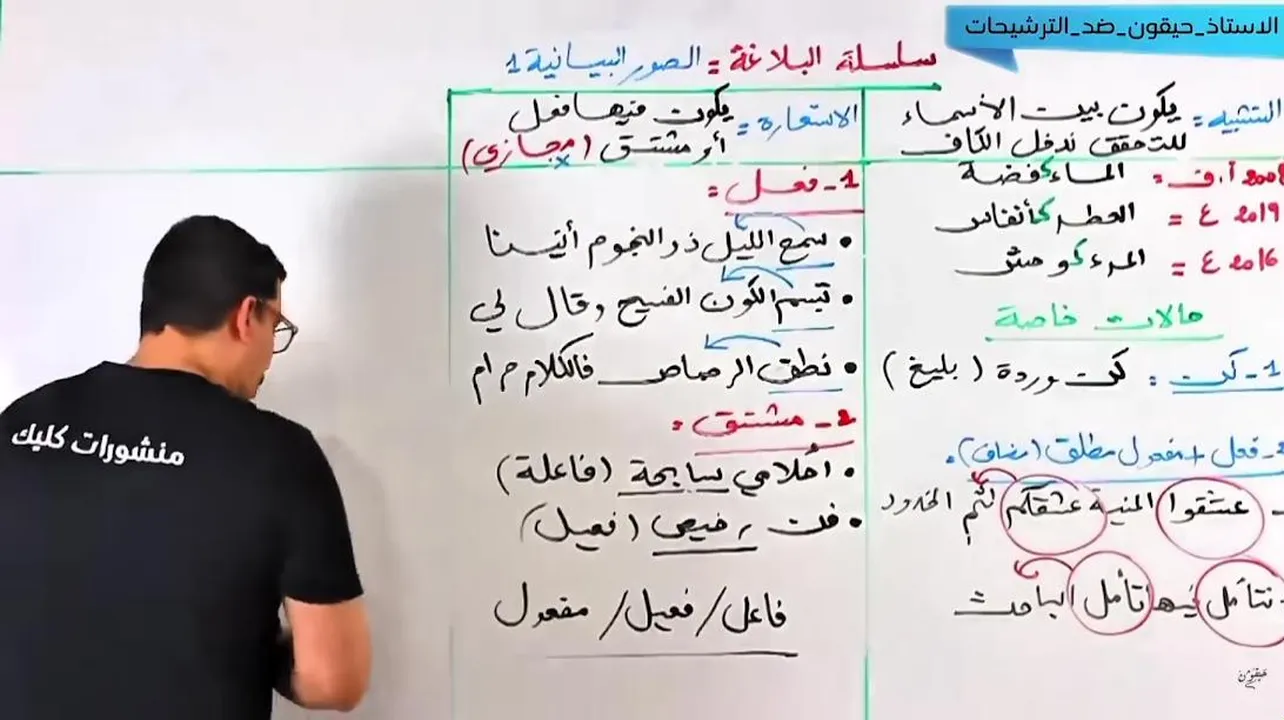 الاستاذ_حيقون_ضد_الترشيحات
سلسلة البلاغة = الصور البيانية 1
التشبيه = يكون بين الأسماء
للتحقق ندخل الكاف
2008 أ.ف = الماء كفضة
2019 ع = العطر كأنفاس
2016 ع = المرء كوحش
حالات خاصة
1- كن : كن وردة (بليغ)
2- فعل + مفعول مطلق (مضاف).
- عشقوا المنية عشقكم لثم الخدود
- نتأمل فيها تأمل الباحث
الاستعارة = يكون فيها فعل
أو مشتق (مجازي)
x
1- فعل =
• سمع الليل ذو النجوم أنينا
• تبسم الكون الفسيح وقال لي
• نطق الرصاص فالكلام حرام
2- مشتق :
• أحلامي سابحة (فاعلة)
• فن رخيص (فعيل)
فاعل / فعيل / مفعول
منشورات كليك
حيقون